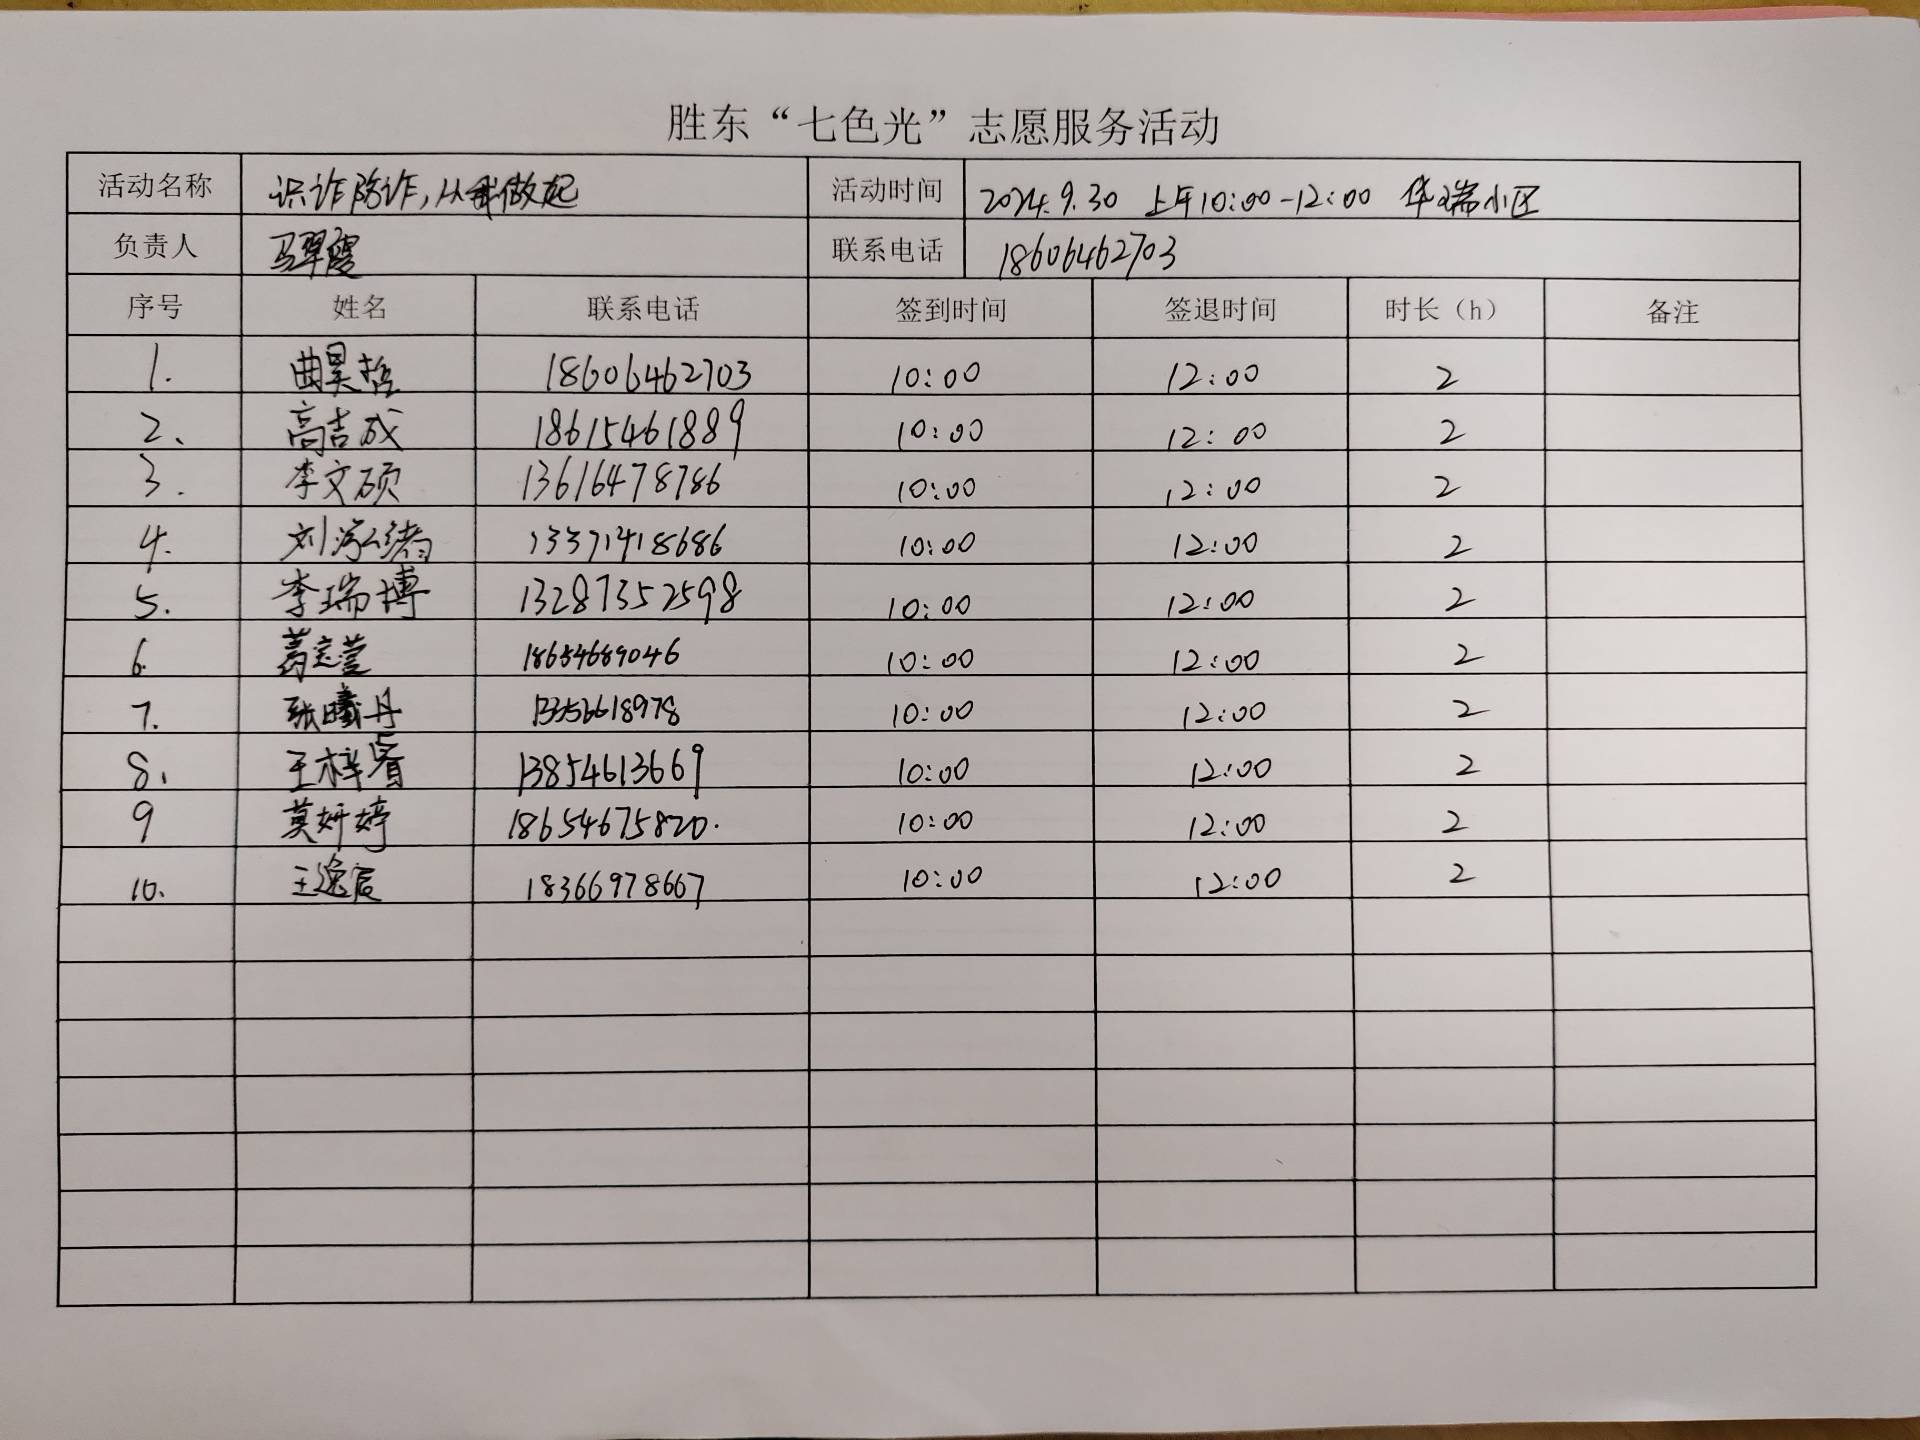 胜东“七色光”志愿服务活动
活动名称 识诈防诈,从我做起 活动时间 2024.9.30 上午10:00-12:00 华瑞小区
负责人 马翠霞 联系电话 18606462703
序号 姓名 联系电话 签到时间 签退时间 时长（h） 备注
1. 曲昊哲 18606462703 10:00 12:00 2
2、 高吉成 18615461889 10:00 12:00 2
3. 李文硕 13616478786 10:00 12:00 2
4. 刘泓绪 13371418686 10:00 12:00 2
5. 李瑞博 13287352598 10:00 12:00 2
6. 葛 18654689046 10:00 12:00 2
7. 张曦丹 13356618978 10:00 12:00 2
8. 王梓睿 13854613669 10:00 12:00 2
9 莫妍婷 18654675820. 10:00 12:00 2
10. 王逸辰 18366978667 10:00 12:00 2